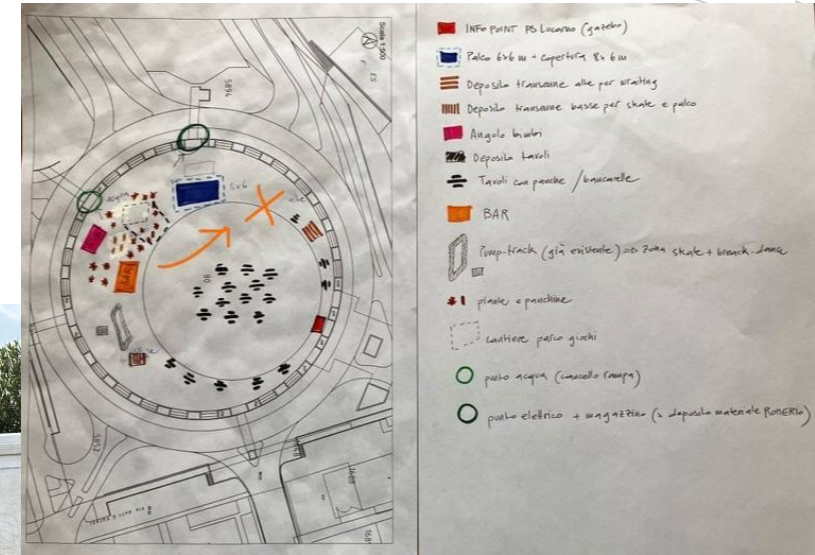 Scala 1:500
5894
8x6
acqua
alte
BAR
80
5852
1688
INFO POINT PS Locarno (gazebo)
Palco 6x6 m + copertura 8x6 m
Deposito transenne alte per writing
Deposito transenne basse per skate e palco
Angolo bimbi
Deposito tavoli
Tavoli con panche / bancarelle
BAR
Pump-track (già esistente) => zona skate + break-dance
piante e panchine
cantiere parco giochi
punto acqua (cancello rampa)
punto elettrico + magazzino (> deposito materiale ROMERIO)